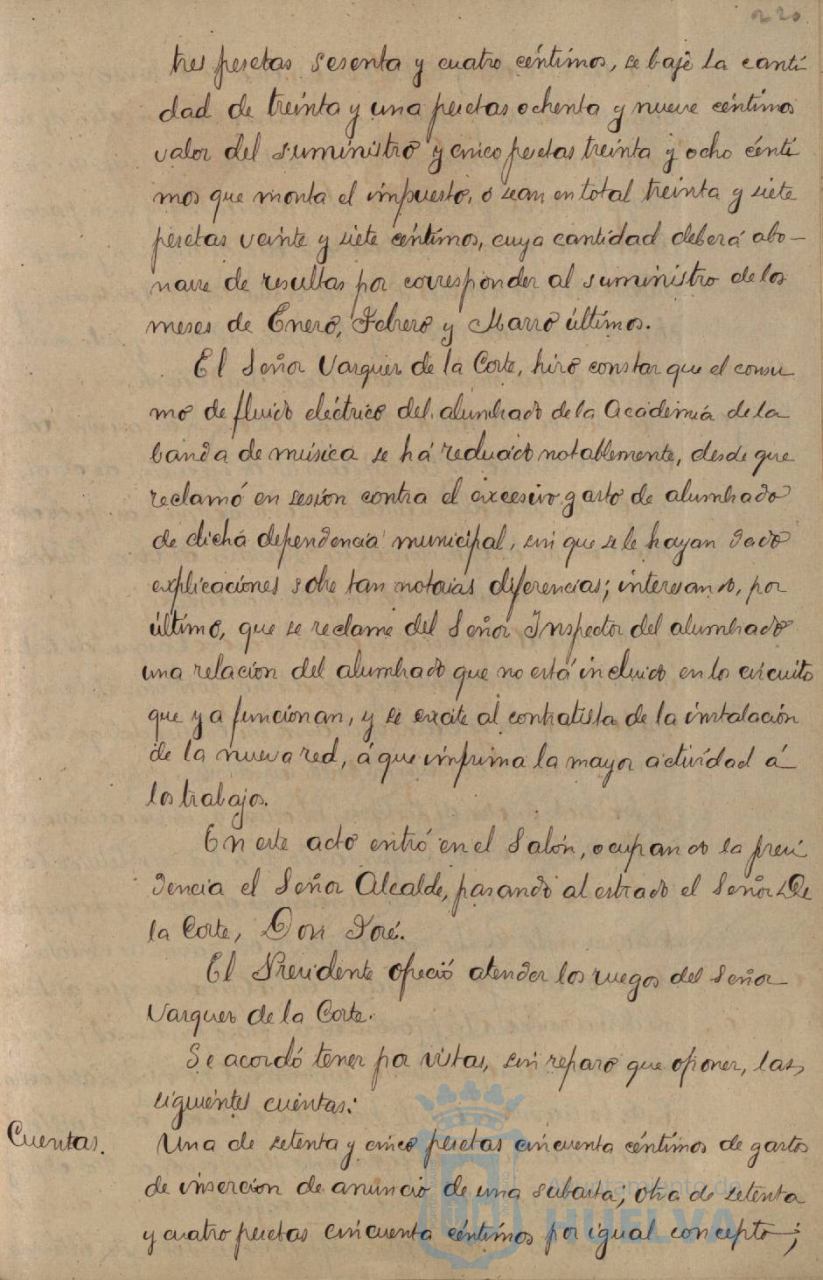 220
tres pesetas sesenta y cuatro céntimos, se baje la canti
dad de treinta y una pesetas ochenta y nueve céntimos
valor del suministro y cinco pesetas treinta y ocho cénti
mos que monta el impuesto, o sean en total treinta y siete
pesetas veinte y siete céntimos, cuya cantidad deberá abo-
narse de resultas por corresponder al suministro de los
meses de Enero, Febrero y Marzo últimos.
El Señor Vazquez de la Corte, hizo constar que el consu
mo de fluido eléctrico del alumbrado de la Academia de la
banda de música se há reducido notablemente, desde que
reclamó en sesión contra el excesivo gasto de alumbrado
de dicha dependencia municipal, sin que se le hayan dado
explicaciones sobre tan notorias diferencias; interesando, por
último, que se reclame del Señor Inspector del alumbrado
una relación del alumbrado que no está incluido en los circuitos
que ya funcionan, y se excite al contratista de la instalación
de la nueva red, á que imprima la mayor actividad á
los trabajos.
En este acto entró en el Salón, ocupando la presi
dencia el Señor Alcalde, pasando al estrado el Señor De
la Corte, Don José.
El Presidente ofreció atender los ruegos del Señor
Vazquez de la Corte.
Se acordó tener por vistas, sin reparo que oponer, las
siguientes cuentas:
Cuentas. Una de setenta y cinco pesetas cincuenta céntimos de gastos
de inserción de anuncio de una subasta; otra de setenta
y cuatro pesetas cincuenta céntimos por igual concepto;
Ayuntamiento de
HUELVA